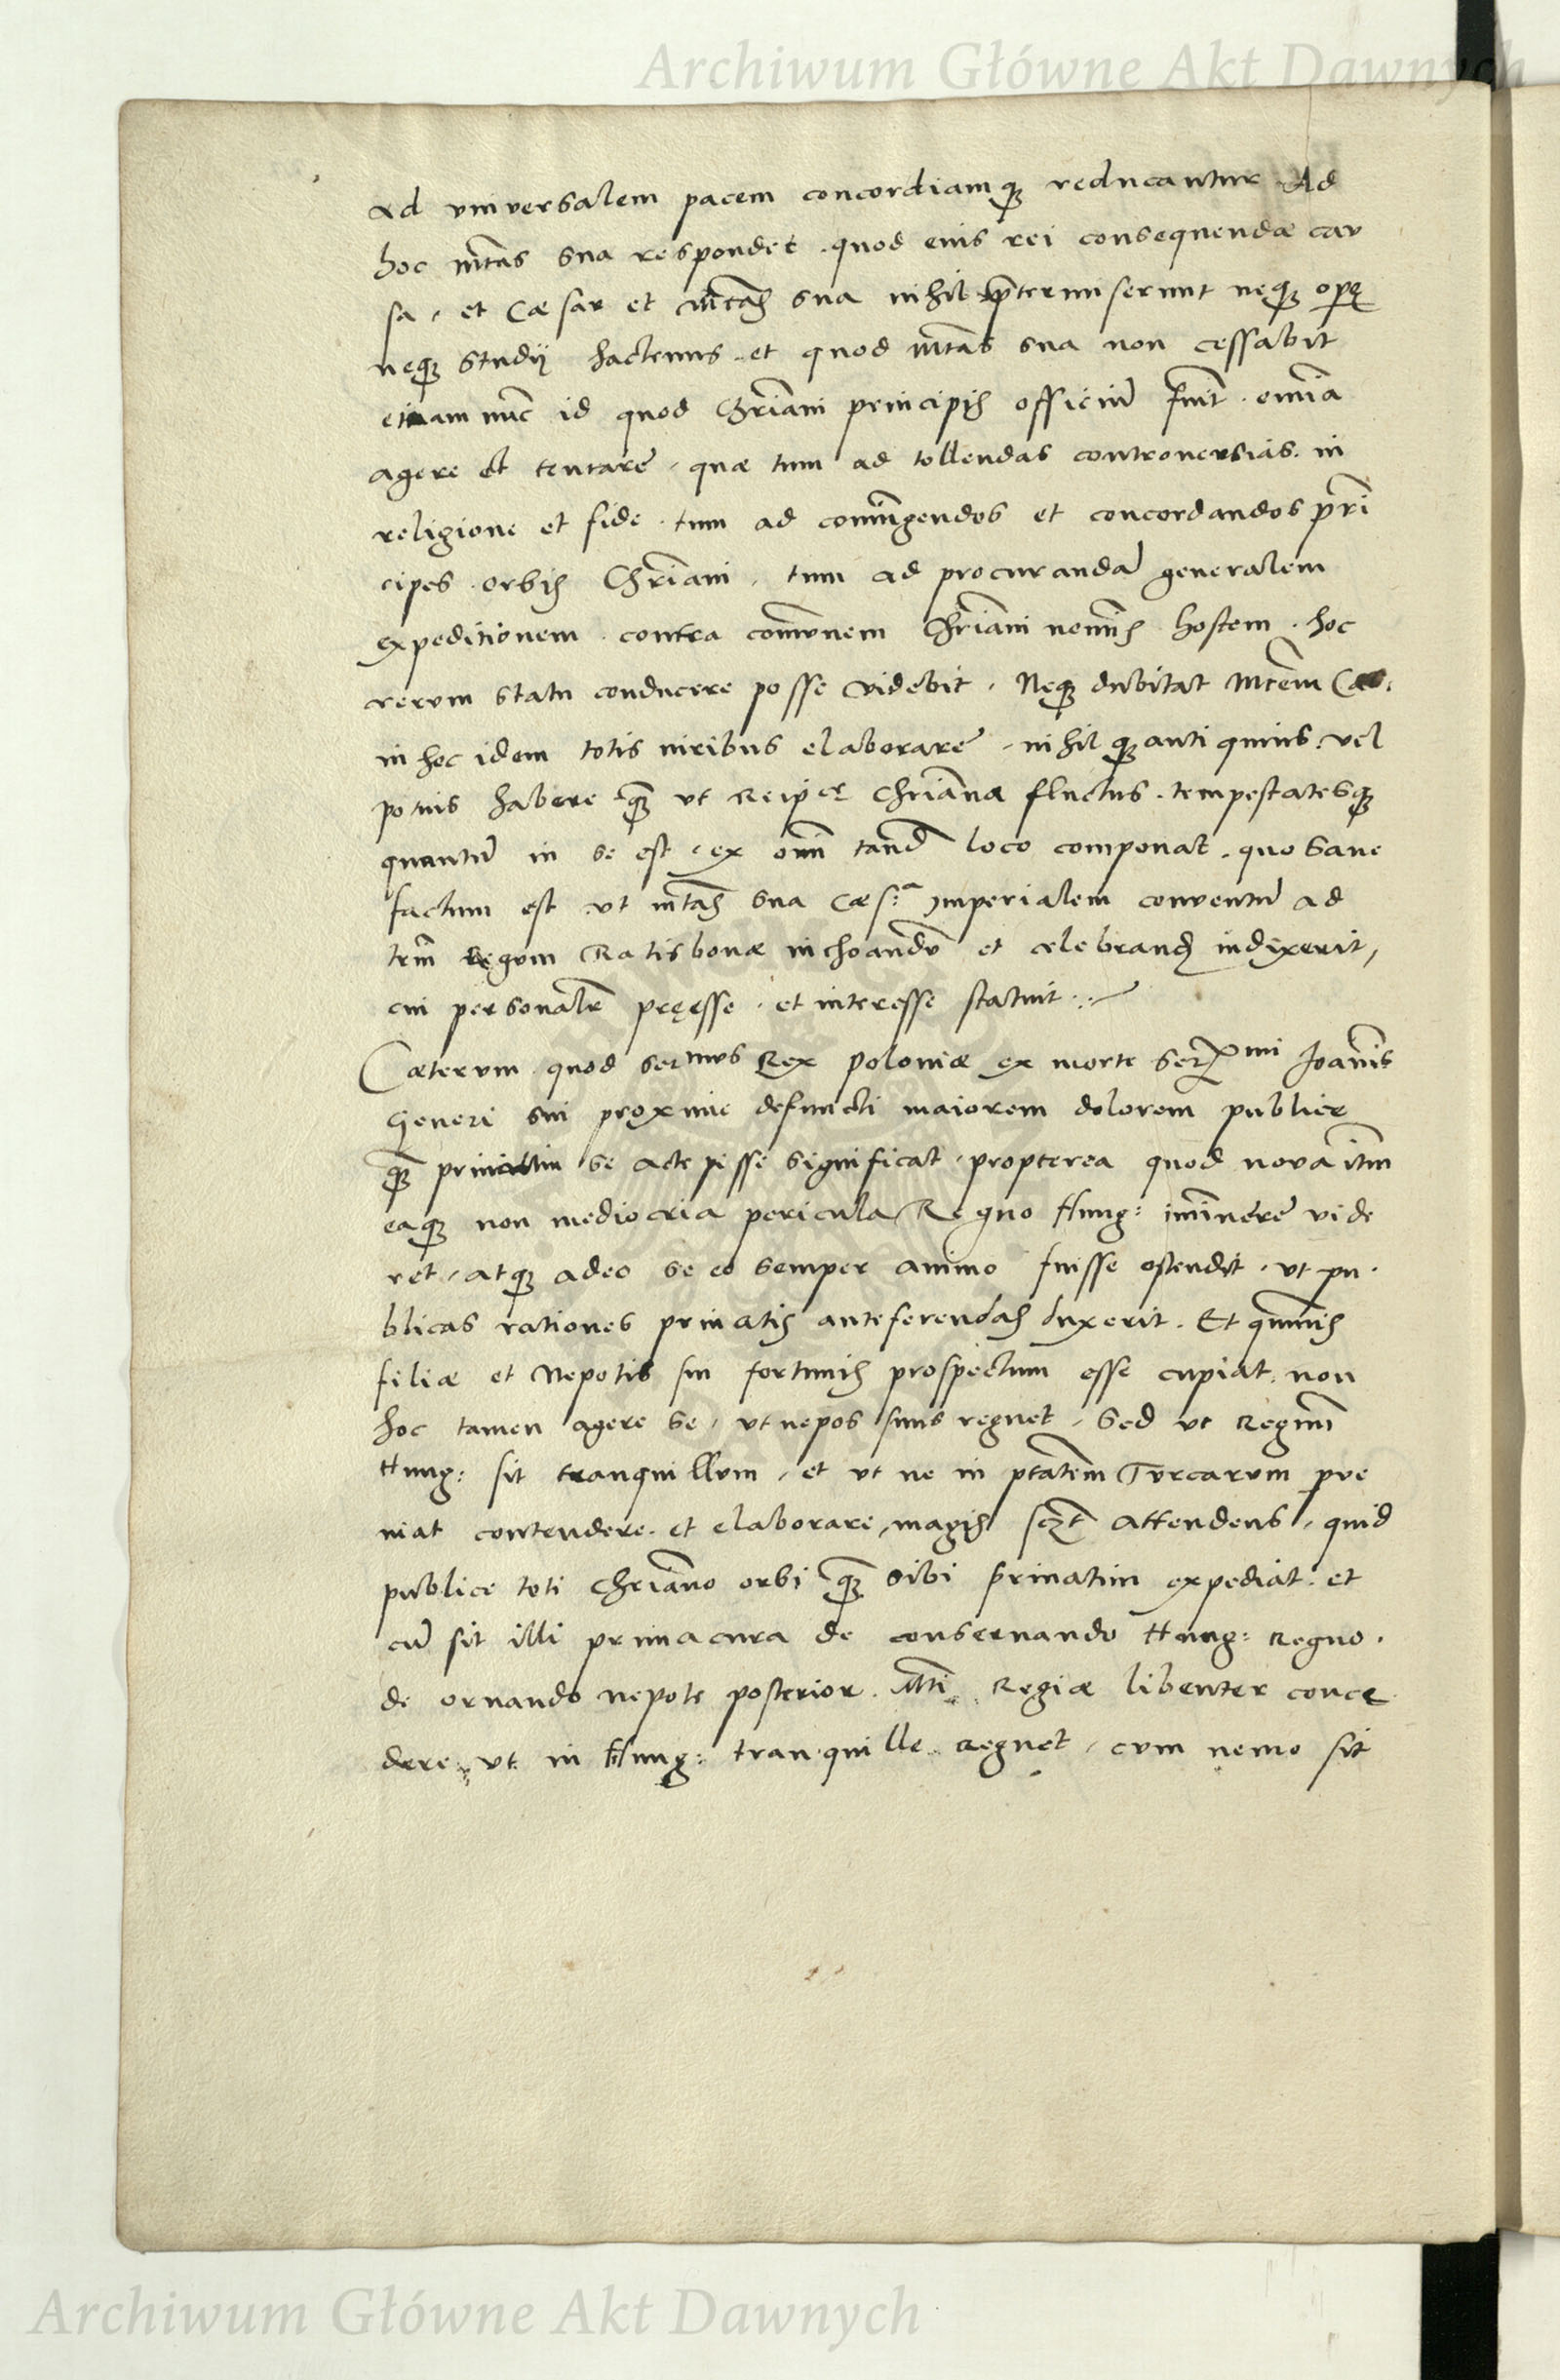 Archiwum Główne Akt Dawnych
ad vniversalem pacem concordiamq; reducantur. Ad
hoc mtas sua respondet. quod eius rei consequendæ cau
sa, et Cæsar et mtas sua nihil prtermiserunt neq; operę
neq; studij hactenus. et quod mtas sua non cessabit
etiam nunc id quod Chriani principis officiũ fuit. omnia
agere et tentare, quæ tum ad tollendas controuersias. in
religione et fide. tum ad coniungendos et concordandos prin
cipes. orbis Chriani, tum ad procurandã generalem
expeditionem. contra comunem Chriani nominis hostem. hoc
rerum statu conducere posse videbit. Neq; dubitat Mtem Cæs.
in hoc idem totis uiribus elaborare, nihilq; antiquius. vel
potius habere quam vt Reipce Chrianæ fluctus. tempestatesq;
quantũ in se est, ex omni tand loco componat. quo sane
factum est vt mtas sua Cæs.a jmperialem conuentũ ad
trm Regum Ratisbonæ inchoandũ et celebrand indixerit,
cui personalr pręesse. et interesse statuit.
Cæterum quod sermus Rex Poloniæ ex morte sermi Joannis
Generi sui proxime defuncti maiorem dolorem publice
quam priuatim se accepisse significat. propterea quod nova itm
eaq; non mediocria pericula Regno Hung: iminere vide
ret, atq; adeo se eo semper animo fuisse ostendit. vt pu.
blicas rationes priuatis anteferendas duxerit. Et quamuis
filiæ et Nepotis sui fortunis prospectum esse cupiat. non
hoc tamen agere se, vt nepos suus regnet, sed vt Regnum
Hung: sit tranquillum, et vt ne in ptatem Turcarum pue
niat contendere. et elaborare, magis sczt attendens, quid
publice toti Chriano orbi quam sibi priuatim expediat. et
cũ sit illi prima cura de conseruando Hung: Regno.
de ornando nepote posterior. Mti Regiæ libenter conce
dere, vt in Hung: tranquille regnet, cum nemo sit
Archiwum Główne Akt Dawnych